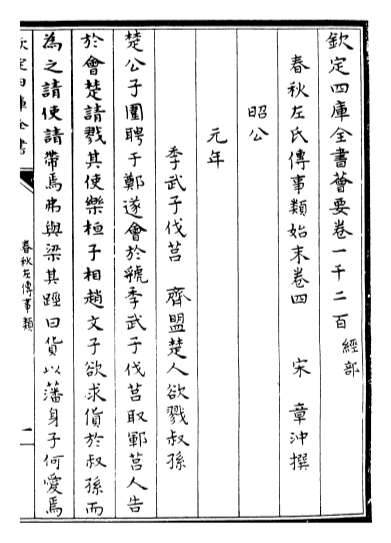 欽定四庫全書薈要卷一千二百 經部
春秋左氏傳事類始末卷四 宋 章沖撰
昭公
元年
季武子伐莒 齊盟楚人欲戮叔孫
楚公子圍聘于鄭遂會於虢季武子伐莒取鄆莒人告
於會楚請戮其使樂桓子相趙文子欲求貨於叔孫而
為之請使請帶焉弗與梁其踁曰貨以藩身子何愛焉
欽定四庫全書
春秋左傳事類
一